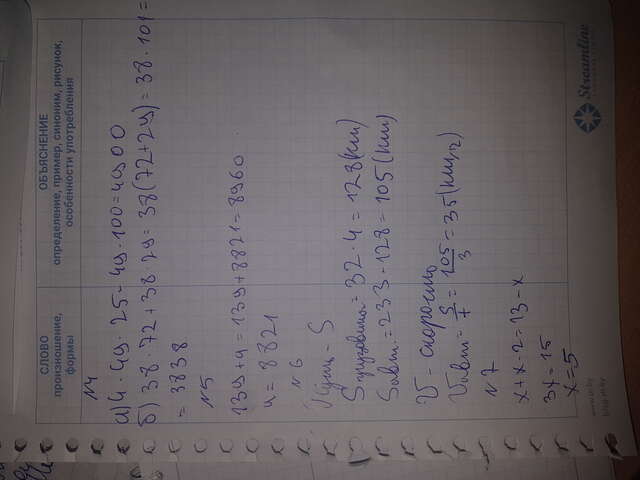 СЛОВО
произношение,
формы
ОБЪЯСНЕНИЕ
определение, пример, синоним, рисунок,
особенности употребления
№4
а) 4 · 49 · 25 = 49 · 100 = 4900
б) 38 · 72 + 38 · 29 = 38(72+29) = 38 · 101 =
= 3838
№5
139 + y = 139 + 8821 = 8960
y = 8821
№6
Путь - S
S грузовика = 32 · 4 = 128 (км)
S авт. = 233 - 128 = 105 (км)
V - скорость
V авт = S/7 = 105/3 = 35 (км/ч)
№7
x + x - 2 = 13 - x
3x = 15
x = 5
Streamline